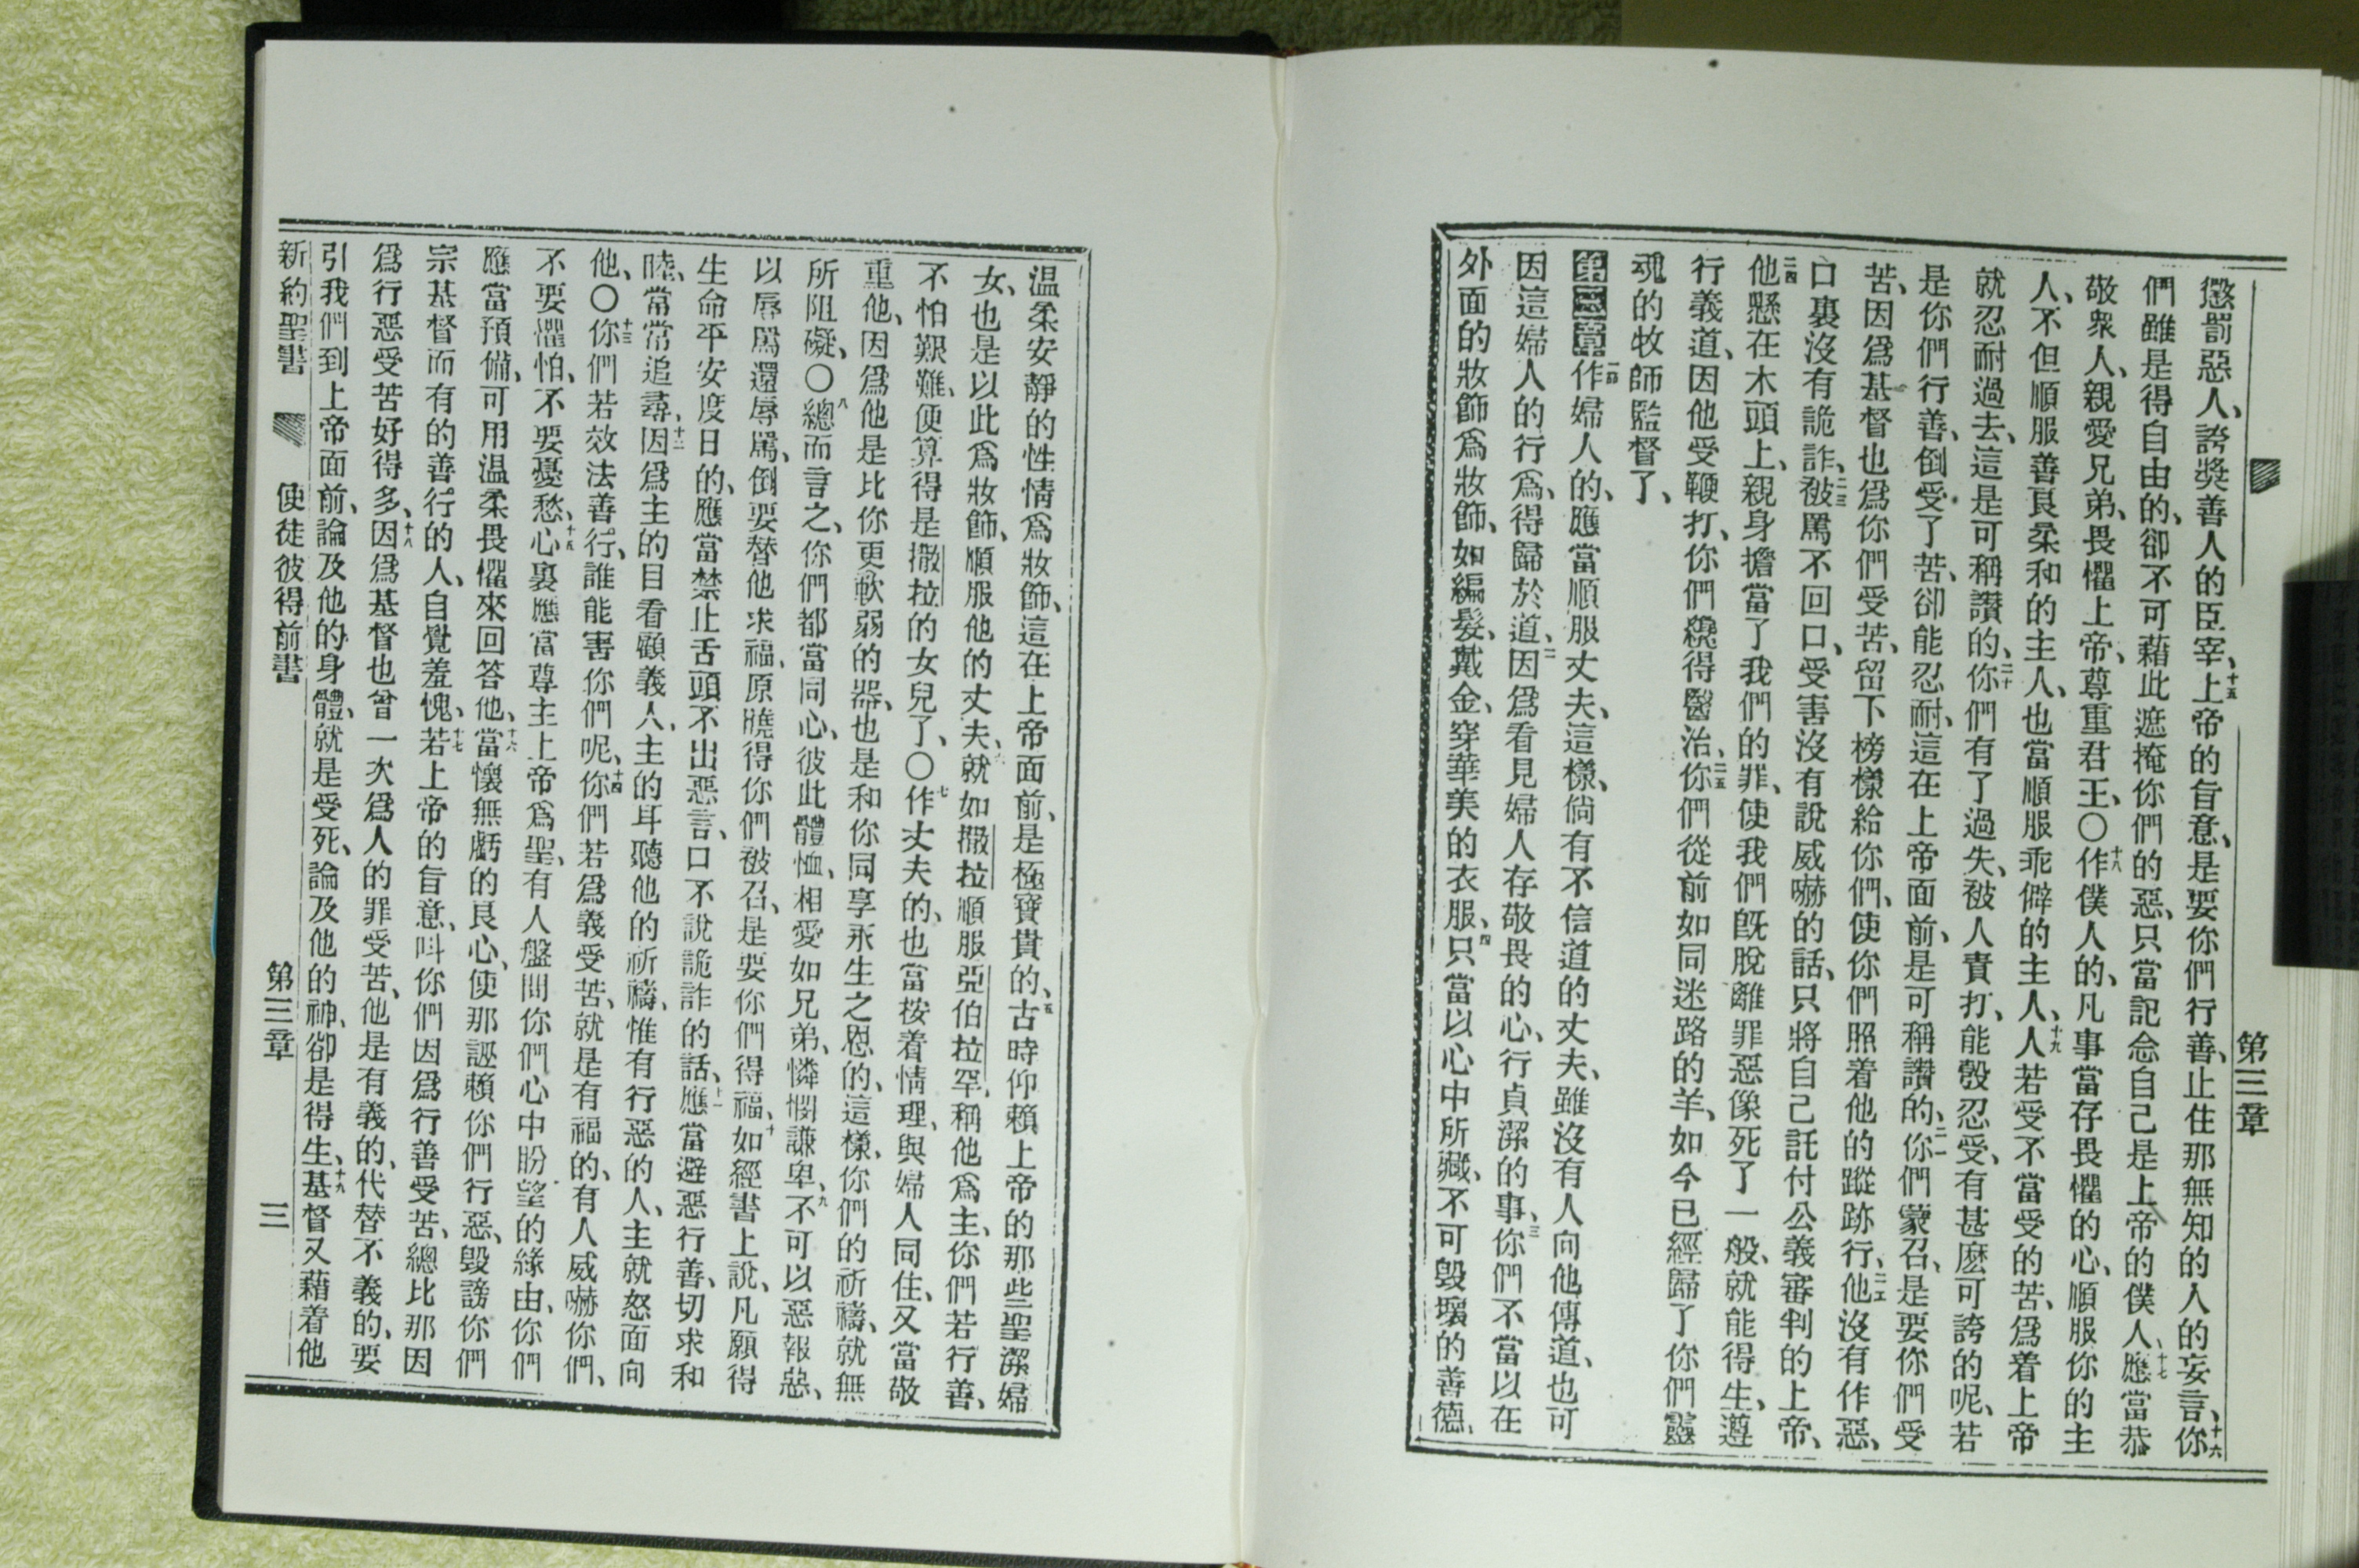 第三章
懲罰惡人、誇獎善人的臣宰、十五上帝的旨意、是要你們行善、止住那無知的人的妄言、十六你
們雖是得自由的、卻不可藉此遮掩你們的惡、只當記念自己是上帝的僕人、十七應當恭
敬衆人、親愛兄弟、畏懼上帝、尊重君王、○十八作僕人的、凡事當存畏懼的心、順服你的主
人、不但順服善良柔和的主人、也當順服乖僻的主人、十九人若受不當受的苦、爲着上帝
就忍耐過去、這是可稱讚的、二十你們有了過失、被人責打、能彀忍受、有甚麽可誇的呢、若
是你們行善、倒受了苦、卻能忍耐、這在上帝面前、是可稱讚的、二一你們蒙召、是要你們受
苦、因爲基督也爲你們受苦、留下榜樣給你們、使你們照着他的蹤跡行、二二他沒有作惡、
口裏沒有詭詐、二三被罵不回口、受害沒有說威嚇的話、只將自己託付公義審判的上帝、
二四他懸在木頭上、親身擔當了我們的罪、使我們旣脫離罪惡像死了一般、就能得生、遵
行義道、因他受鞭打、你們纔得醫治、二五你們從前如同迷路的羊、如今已經歸了你們靈
魂的牧師監督了、
第三章一節作婦人的、應當順服丈夫、這樣、倘有不信道的丈夫、雖沒有人向他傳道、也可
因這婦人的行爲、得歸於道、二因爲看見婦人存敬畏的心、行貞潔的事、三你們不當以在
外面的妝飾爲妝飾、如編髮、戴金、穿華美的衣服、四只當以心中所藏、不可毀壞的善德、
温柔安靜的性情爲妝飾、這在上帝面前、是極寶貴的、五古時仰賴上帝的那些聖潔婦
女、也是以此爲妝飾、順服他的丈夫、六就如撒拉順服亞伯拉罕、稱他爲主、你們若行善、
不怕艱難、便算得是撒拉的女兒了、○七作丈夫的、也當按着情理、與婦人同住、又當敬
重他、因爲他是比你更軟弱的器、也是和你同享永生之恩的、這樣、你們的祈禱、就無
所阻礙、○八總而言之、你們都當同心、彼此體恤、相愛如兄弟、憐憫謙卑、九不可以惡報惡、
以辱罵還辱罵、倒要替他求福、原曉得你們被召、是要你們得福、十如經書上說、凡願得
生命平安度日的、應當禁止舌頭不出惡言、口不說詭詐的話、十一應當避惡行善、切求和
睦、常常追尋、十二因爲主的目看顧義人、主的耳聽他的祈禱、惟有行惡的人、主就怒面向
他、○十三你們若效法善行、誰能害你們呢、十四你們若爲義受苦、就是有福的、有人威嚇你們、
不要懼怕、不要憂愁、十五心裏應當尊主上帝爲聖、有人盤問你們心中盼望的緣由、你們
應當預備、可用温柔畏懼來回答他、十六當懷無虧的良心、使那誣賴你們行惡、毀謗你們
宗基督而有的善行的人、自覺羞愧、十七若上帝的旨意、叫你們因爲行善受苦、總比那因
爲行惡受苦好得多、十八因爲基督也曾一次爲人的罪受苦、他是有義的、代替不義的、要
引我們到上帝面前、論及他的身體、就是受死、論及他的神、卻是得生、十九基督又藉着他
新約聖書 使徒彼得前書 第三章 三